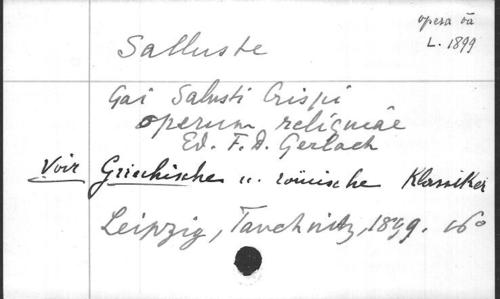 opera oa
L. 1899
Salluste
Gai Salusti Crispi
operum reliquiae
Ed. F. D. Gerlach
Voir Griechische u. römische Klassiker
Leipzig, Tauchnitz, 16°